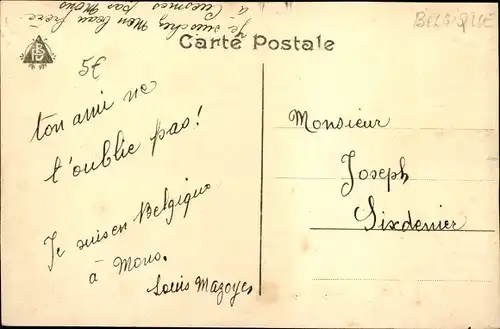 Je suis chez Mon beau frère
à Cuesmes pas Mons
BELGIQUE
Carte Postale
5€
ton ami ne
t'oublie pas!
Je suis en Belgique
à Mons.
Louis Mazoyer
Monsieur
Joseph
Sixdenier